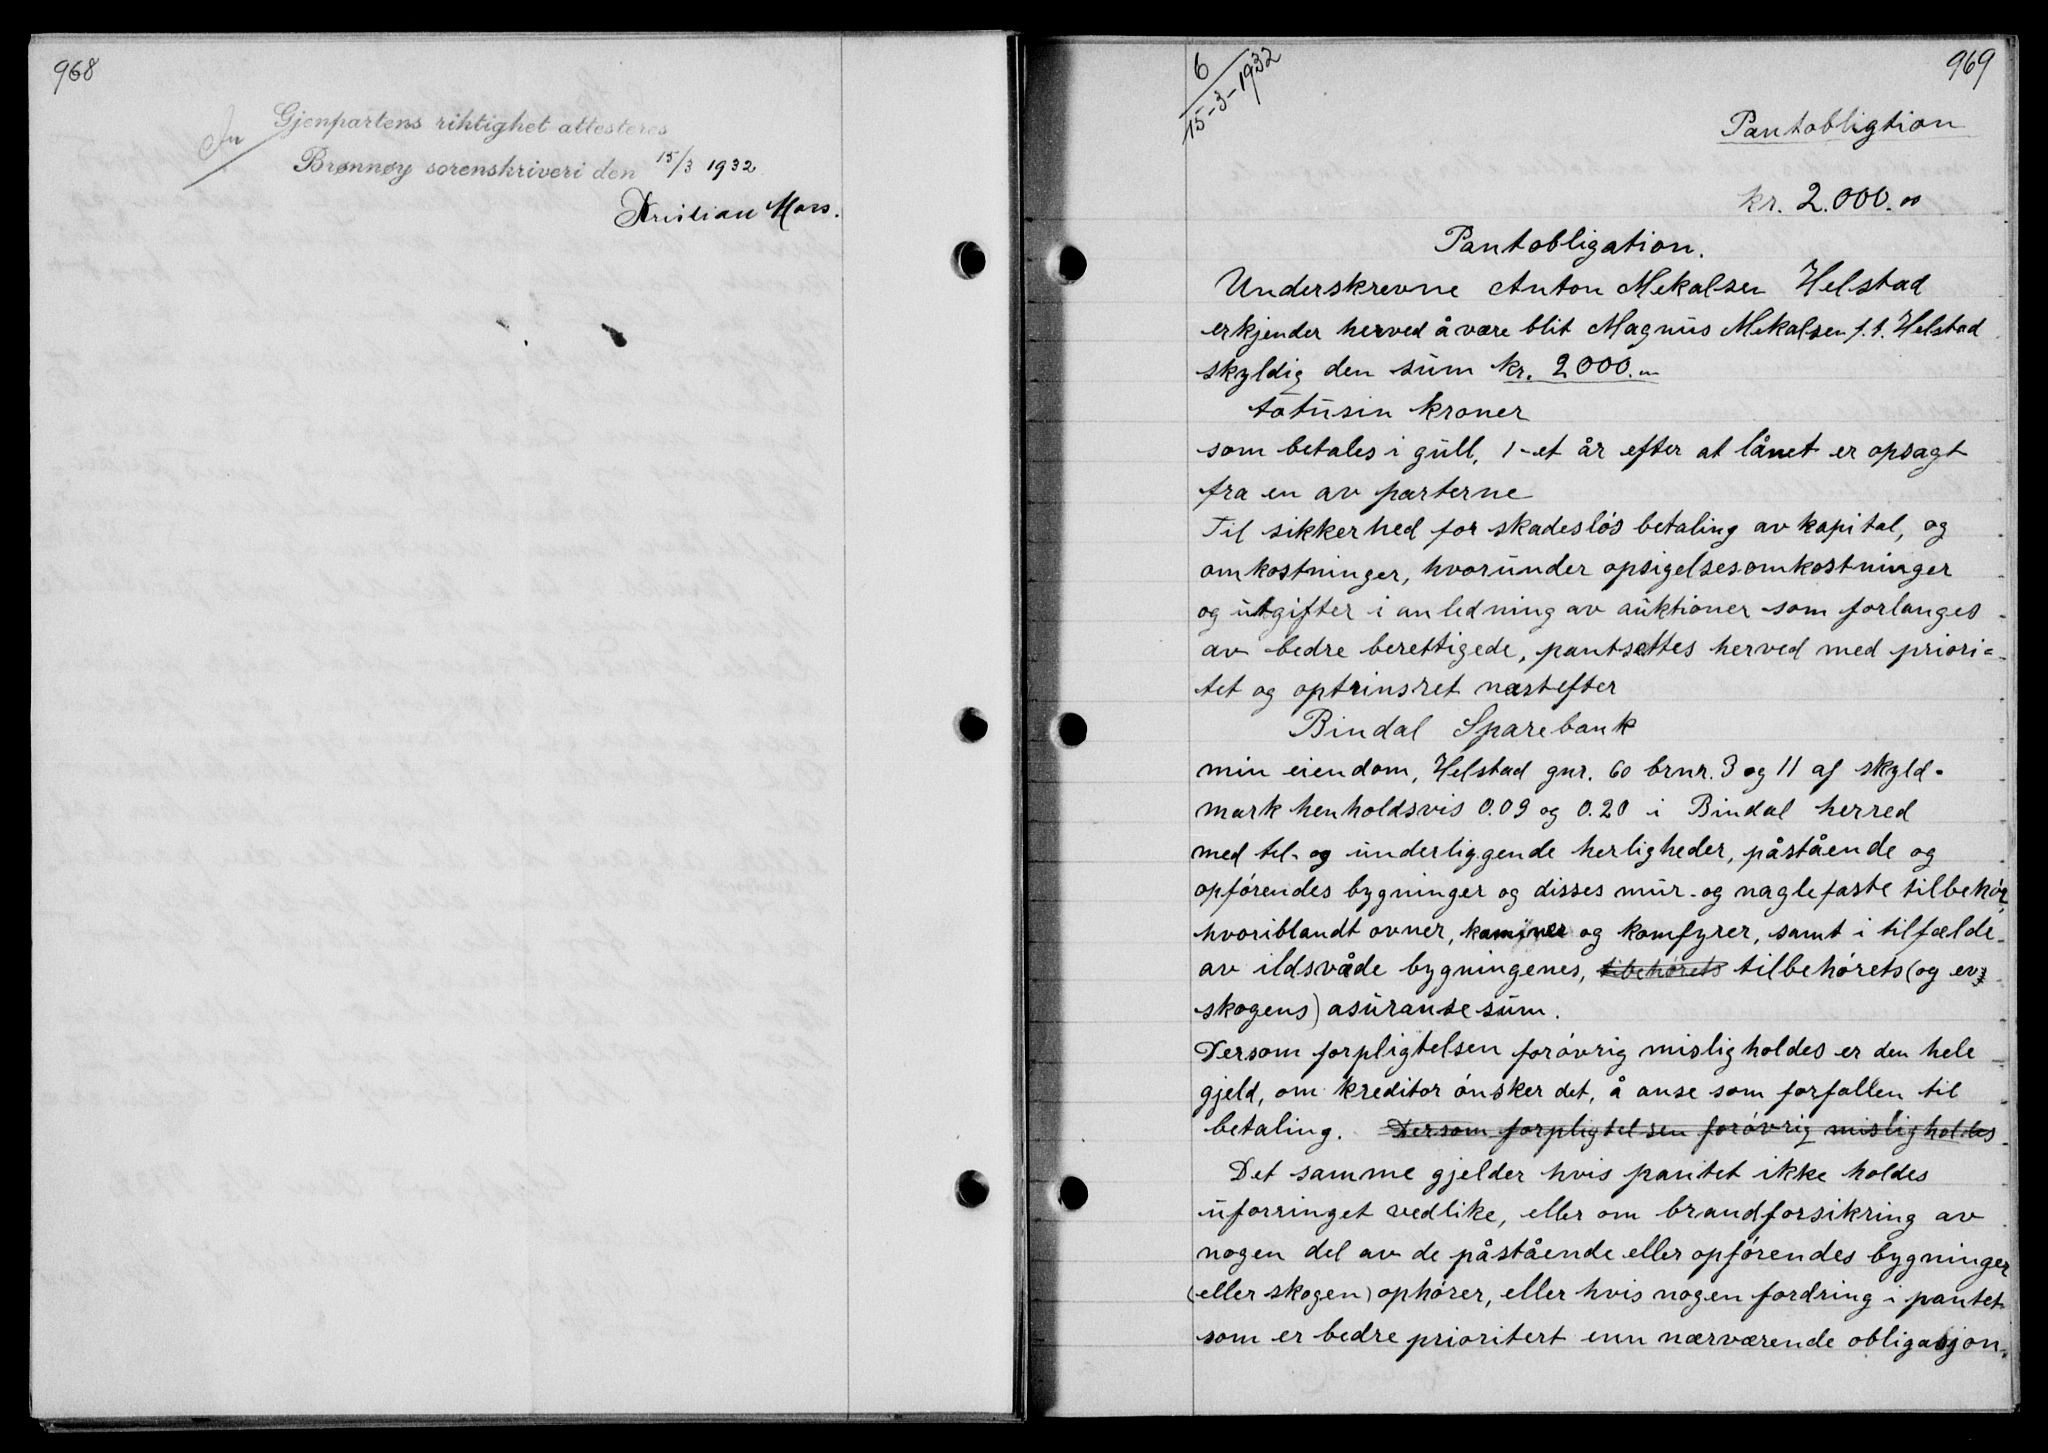 968
Gjenpartens riktighet attesteres
Brønnøy sorenskriveri den 15/3 1932
Kristian Mars.
969
6
15-3-1932
Pantobligtion
kr. 2.000.00
Pantobligation.
Underskrevne Anton Mekalsen Helstad
erkjender herved å være blit Magnus Mekalsen f.t. Helstad
skyldig den sum kr. 2000.-
totusin kroner
som betales i gull, 1-et år efter at lånet er opsagt
fra en av parterne
Til sikkerhed for skadesløs betaling av kapital, og
omkostninger, hvorunder opsigelsesomkostninger
og utgifter i anledning av auktioner som forlanges
av bedre berettigede, pantsettes herved med priori-
tet og optrinsret næstefter
Bindal Sparebank
min eiendom, Helstad gnr. 60 brnr. 3 og 11 af skyld-
mark henholdsvis 0.09 og 0.20 i Bindal herred
med til- og underliggende herligheder, påstående og
opførendes bygninger og disses mur- og naglefaste tilbehør,
hvoriblandt ovner, kaminer og komfyrer, samt i tilfælde
av ildsvåde bygningenes, tibehørets tilbehørets (og ev.
skogens) asuranse sum.
Dersom forpligtelsen forøvrig misligholdes er den hele
gjeld, om kreditor ønsker det, å anse som forfallen til
betaling. Dersom forpligtelsen forøvrig misligholdes
Det samme gjelder hvis pantet ikke holdes
uforringet vedlike, eller om brandforsikring av
nogen del av de påstående eller opførendes bygninger
(eller skogen) ophører, eller hvis nogen fordring i pantet
som er bedre prioritert enn nærværende obligasjon